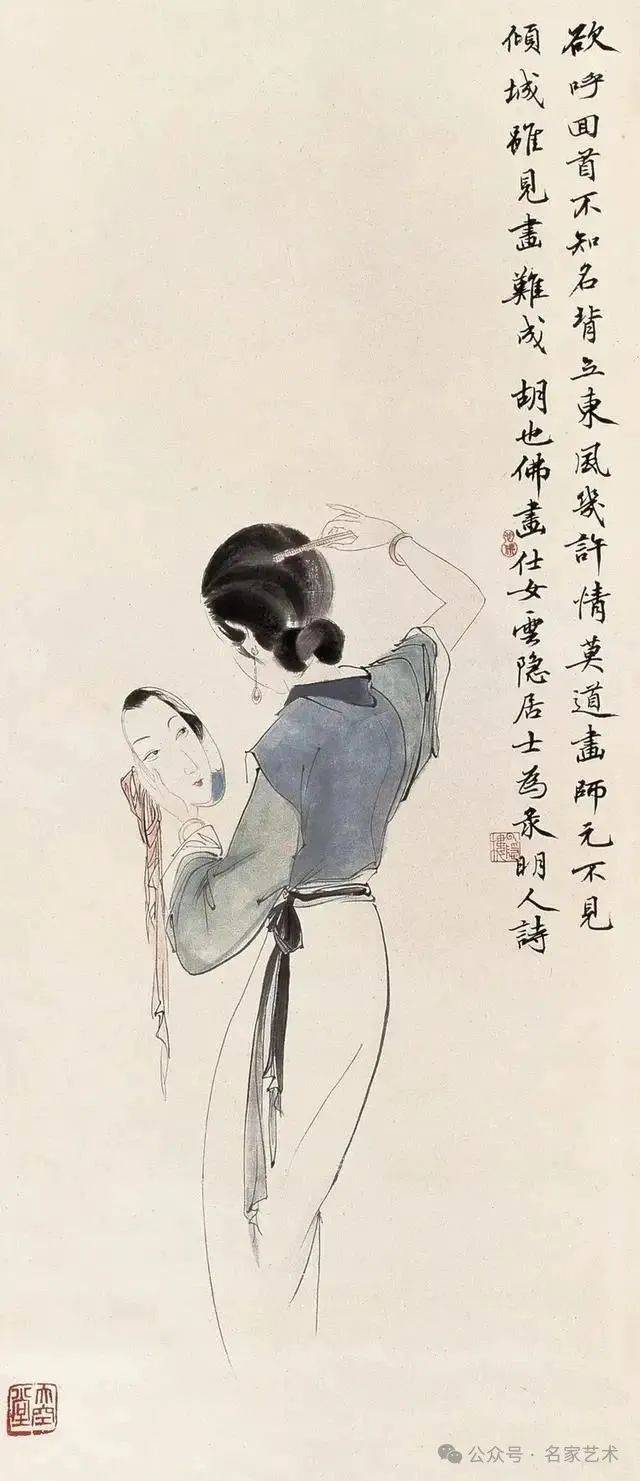 欲呼回首不知名背立東風幾許情莫道畫師元不見
傾城雖見畫難成 胡也佛畫仕女雲隐居士為录明人詩
大空堂
公众号 · 名家艺术